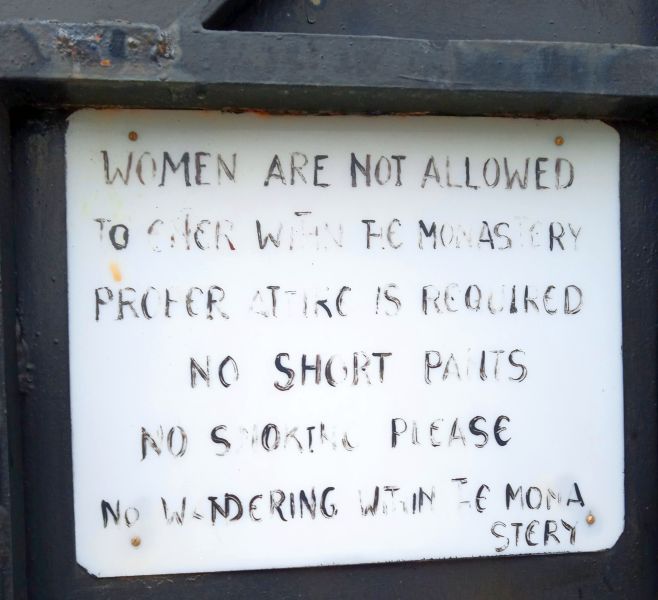 WOMEN ARE NOT ALLOWED
TO ENTER WITHIN THE MONASTERY
PROPER ATTIRE IS REQUIRED
NO SHORT PANTS
NO SMOKING PLEASE
NO WANDERING WITHIN THE MONA
STERY